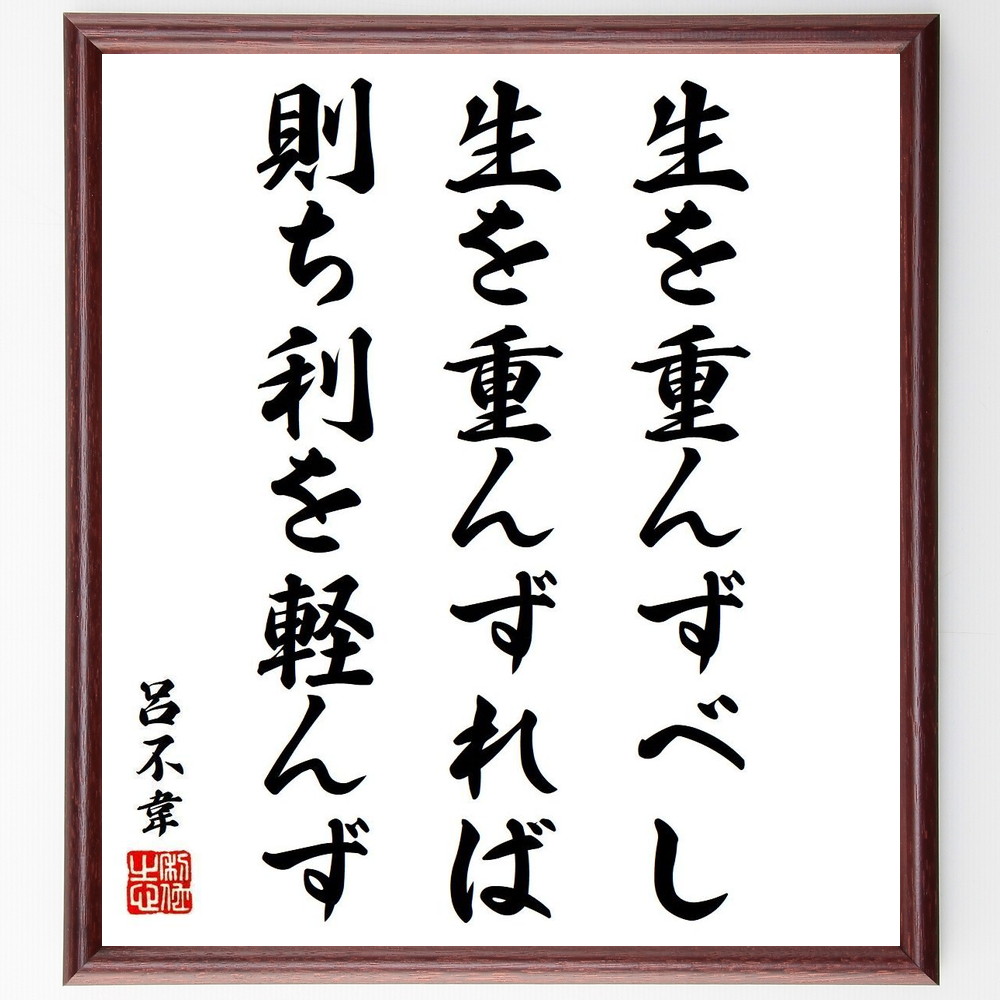 生を重んずべし
生を重んずれば
則ち利を軽んず
呂不韋